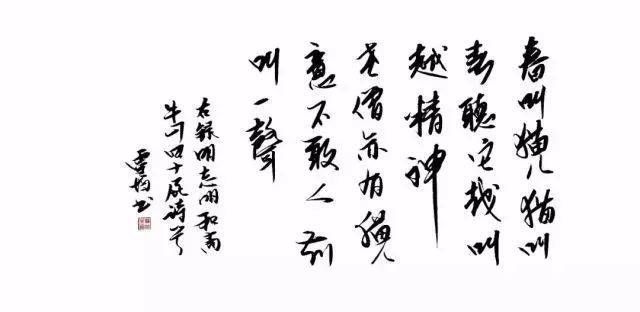 春叫猫儿猫叫
春聽它越叫
越精神
老僧亦有猫儿
意不敢人前
叫一聲
右録明志明和尚
牛山四十屁詩
书